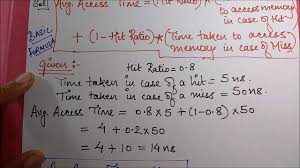 Sol
Avg. Access Time = Hit Ratio * Time taken
to access memory
in case of Hit
BASIC FORMULA
+ (1-Hit Ratio) * (Time taken to access
memory in case of Miss)
Given:-
Hit Ratio = 0.8
Time taken in case of a hit = 5ns.
Time taken in case of a miss = 50ns.
Avg. Access Time = 0.8 x 5 + (1-0.8) x 50
= 4 + 0.2 x 50
= 4 + 10 = 14ns